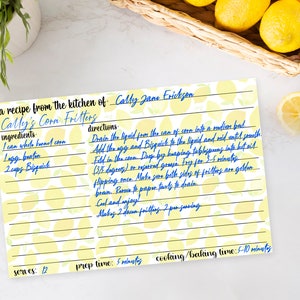 a recipe from the kitchen of: Cally Jane Erickson
Cally's Corn Fritters
ingredients
1 can whole kernel corn
1 egg, beaten
2 cups Bisquick
directions
Drain the liquid from the can of corn into a medium bowl
Add the egg and Bisquick to the liquid and mix until smooth
Fold in the corn. Drop by heaping tablespoons into hot oil
(375 degrees) or reserved grease. Fry for 3-5 minutes,
flipping once. Make sure both sides of fritters are golden
brown. Remove to paper towels to drain.
Cool and enjoy!
Makes 2 dozen fritters, 2 per serving
serves: 12
prep time: 5 minutes
cooking/baking time: 5-10 minutes